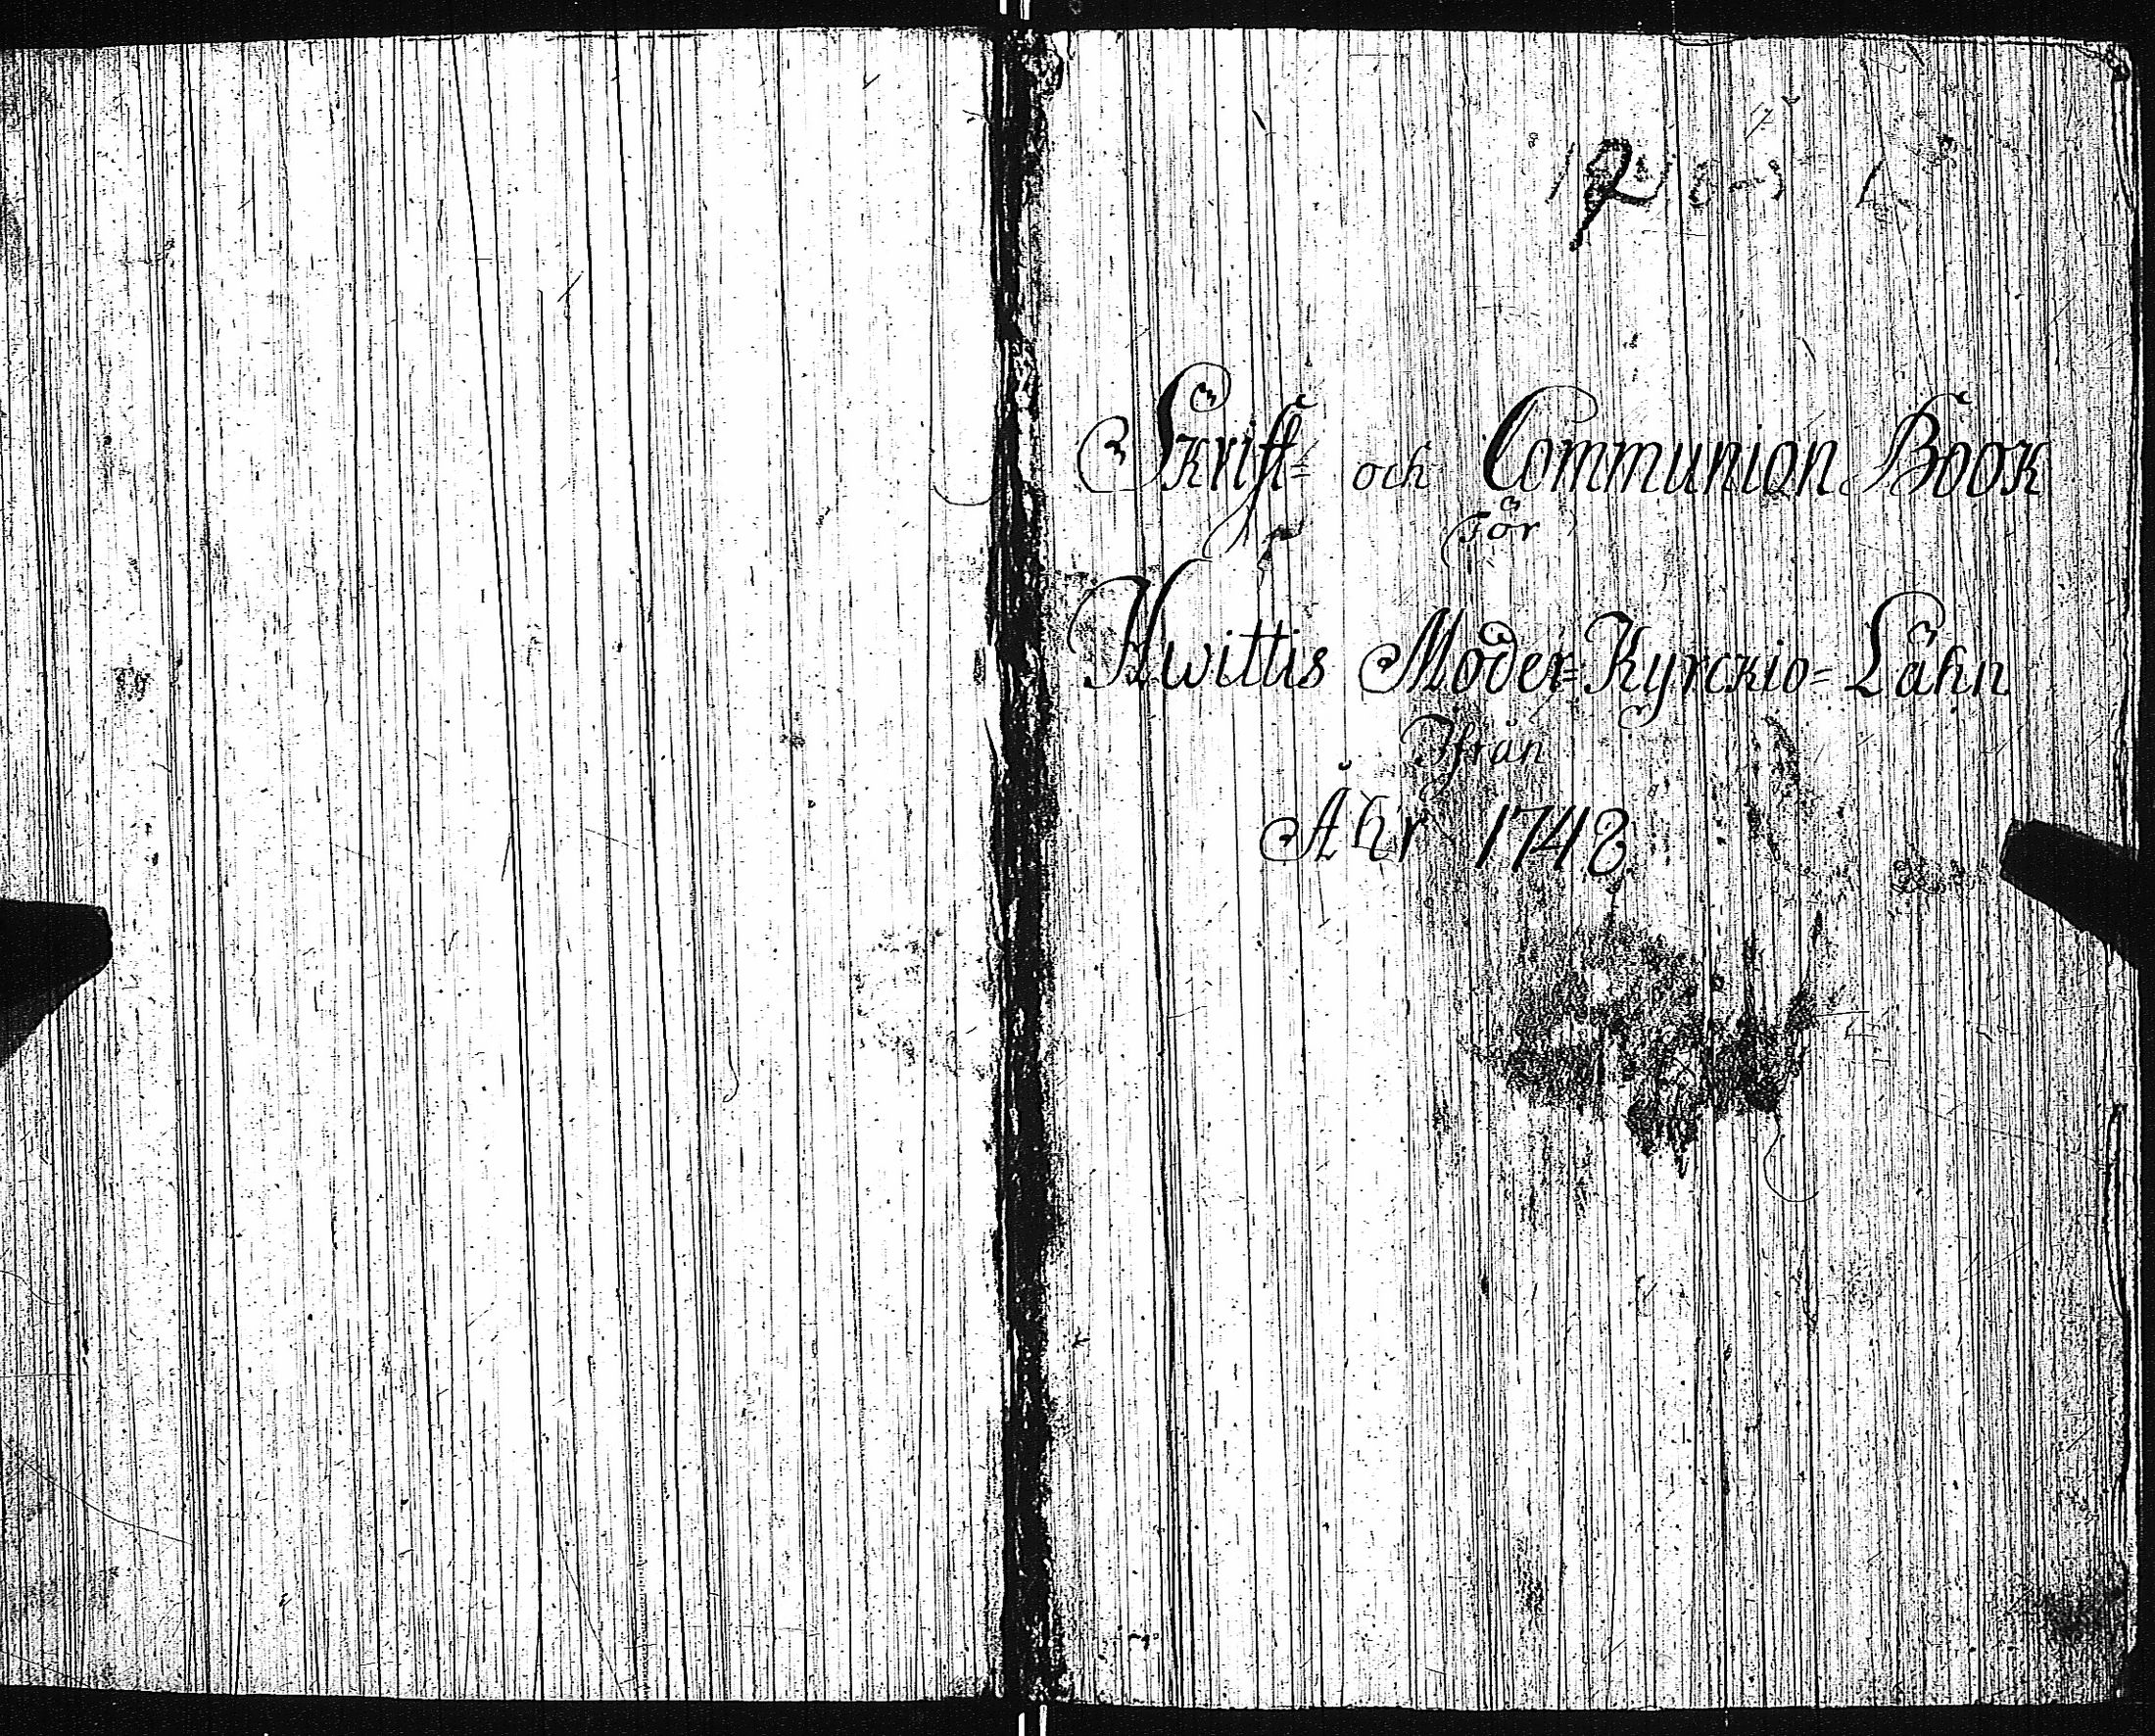 Skrift= och Communion Book
För
Hwittis Moder=Kyrckio=Lähn
Ifrån
Åhr 1748